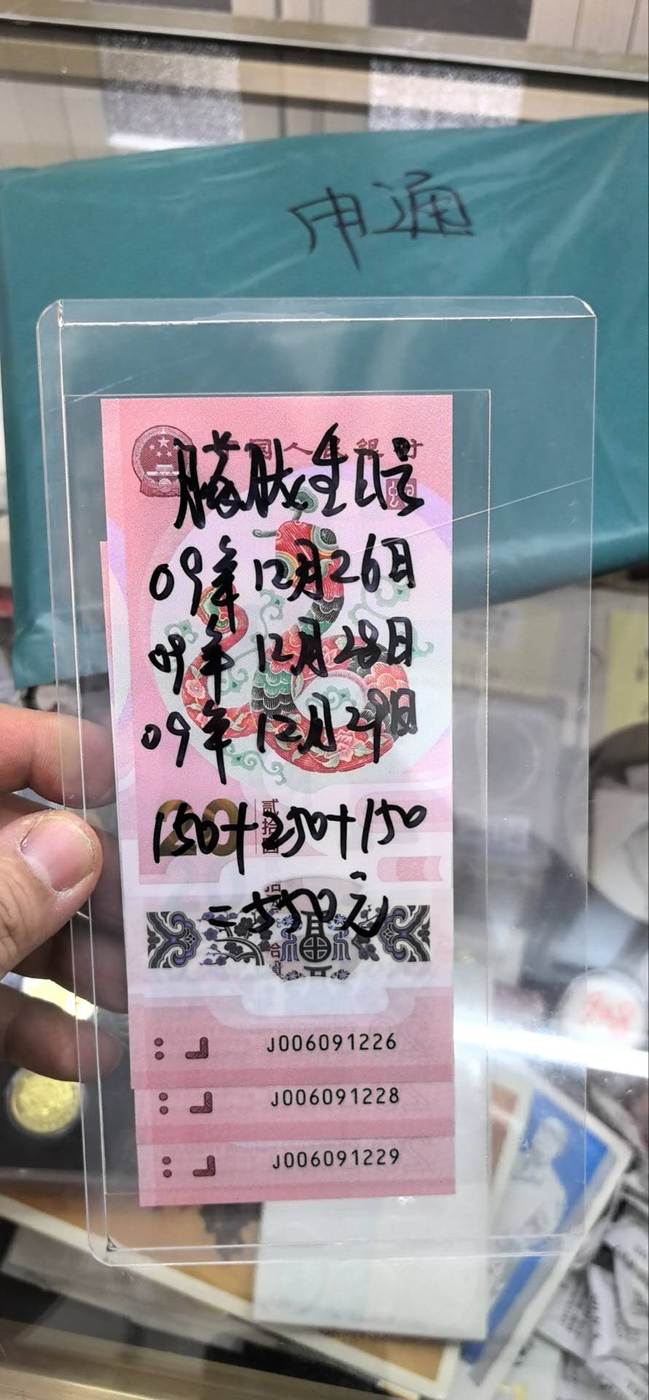 申通
中国人民银行
朦胧生日号
09年12月26日
09年12月28日
09年12月29日
20
150+250+150
=550元
J006091226
J006091228
J006091229